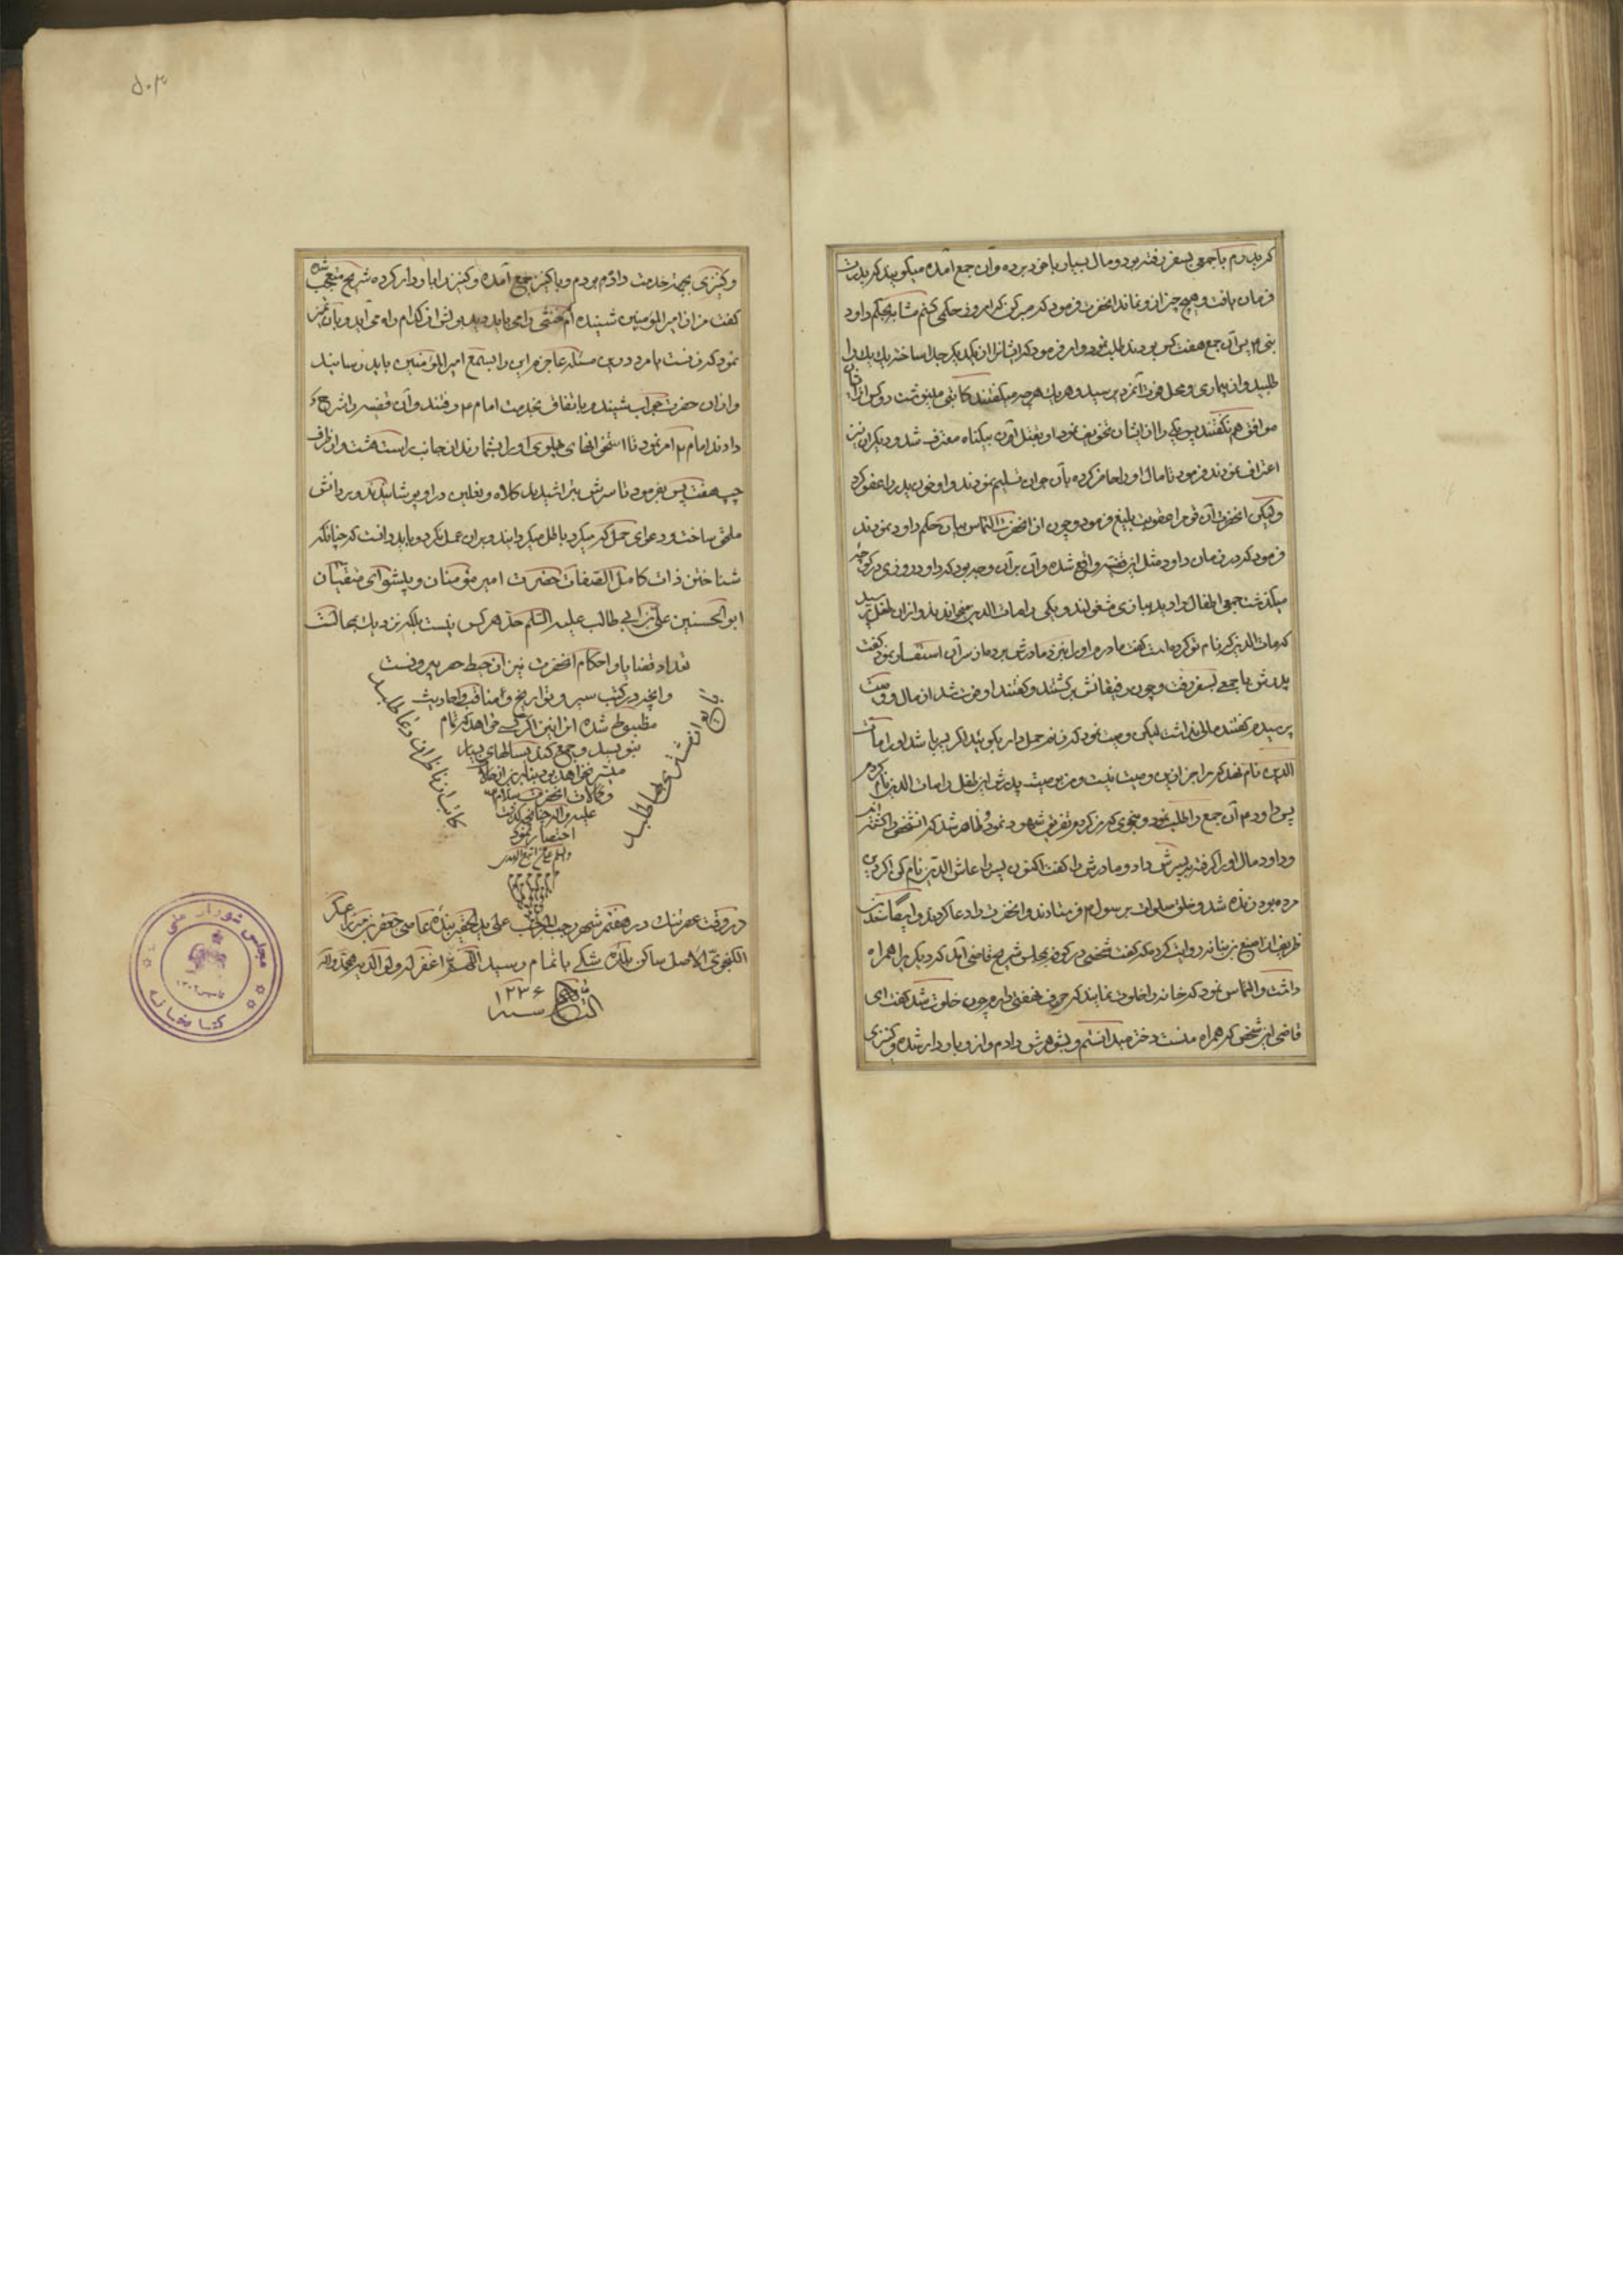 که پدرم با جمعی بسفر رفته بود و مال بسیار با خود برده و آن جمع آمده میگویند که پدرت
فرمان یافت و هیچ چیز از و نماند انحضرت فرمود که من امروز حکمی کنم مشابه بحکم داود
نبی ع پس آن جمع هفت کس بودند طلب نمود و امر فرمود که ایشانرا از یکدیگر جدا ساخته یک یک را
طلبید و از بیماری و محل فوت آنمرد پرسید و هر یک هر چه میگفتند کاتبی مینوشت
موافق هم نگفتند پس یکی را از ایشان تخویف نمود او بقتل آن بیگناه معترف شد و دیگران نیز
اعتراف نمودند فرمود تا مال او را حاضر کرده بآن جوان تسلیم نمودند و او خون پدر را عفو کرد
ولیکن انحضرت آن قوم را عقوبت بلیغ فرمود و چون از انحضرت التماس بیان حکم داود نمودند
فرمود که در زمان داود مثل این قضیه واقع شده و آن بر آن وجه بود که داود روزی در کوچه
میگذشت جمعی اطفال را دید ببازی مشغولند و یکی را مات الدین میخوانند و از آن طفل پرسید
که مات الدین که نام تو کرده است گفت مادرم او را نزد مادرش برد و از سر آن استفسار نمود گفت
پدرش با جمعی بسفر رفت و چون رفیقانش برگشتند و گفتند او فوت شد از مال و وصیت
پرسیدم گفتند مالی نداشت لیکن وصیت نمود که زنم حمل دارد بگوئید اگر پسر باشد او را مات
الدین نام نهد که مرا جز این وصیت نیست و من بوصیت پدرش این طفل را مات الدین نام کردم
پس داود ع آن جمع را طلب نمود و بنحوی که من کردم تفریق شهود نمود و ظاهر شد که انشخص را کشته اند
و داود مال او را گرفته به پسرش داد و مادرش را گفت اکنون پسر را عاش الدین نام کن
مرده بود زنده شد و خلق صلوات بر رسول ع فرستادند و انحضرت را دعا کردند
ظریف از اصبغ بن نباته روایت کرده که گفت شخصی در کوفه بمجلس شریح قاضی آمد که دیگریرا همراه
داشت و التماس نمود که خانه را خلوت نمایند که حرف نهفتی دارم چون خلوت شد گفت ای
قاضی این شخص که همراه منست دختر میدانستم و بشوهرش دادم و از و باردار شده و کنیزی
۵۰۳
و کنیزی بجهة خدمت داده بودم و با کنیز جمع آمده و کنیز را باردار کرده شریح متعجب شده
گفت من از امیر المؤمنین شنیده ام خنثی را می باید دید بولش از کدام راه می آید
نمود که فرقست ما مرد درین مسئله عاجزم این را بسمع امیر المؤمنین باید رسانید
و از آن حضرت جواب شنید و باتفاق بخدمت امام ع رفتند و آن قضیه را شرح
دادند امام ع امر نمود تا استخوانهای پهلوی او را بشمارند از جانب راست هشت و از طرف
چپ هفت پس بفرمود تا سرش بتراشیدند کلاه و نعلین در او پوشانیدند و بمردانش
ملحق ساخت و دعوای حمل که میکرد باطل میکردانید و بر آن عمل نکرد و باید دانست که چنانکه
شناختن ذات کامل الصفات حضرت امیر مؤمنان و پیشوای متقیان
ابو الحسنین علی بن ابی طالب علیه السلم حد هر کس نیست بلکه نزدیک بمحالست
تعداد قضایا و احکام انحضرت نیز از حیطه حصر بیرونست
و انچه در کتب سیر و تواریخ و مناقب و احادیث
مضبوط شده از این اگر کسی خواهد که تمام
بنویسد و جمع کند بسالهای بسیار
میسر نخواهد بود بنابرین از حالات
و کمالات انحضرت سلام الله
علیه و آله
اختصار نمود
والسلم علی من اتبع الهدی
در وقت عصر تنک در هفتم شهر رجب المرجب علی ید الحقیر بنده عاصی جعفر بن میرزا عسکر
الکنجوی الاصل ساکن بلده شکی باتمام رسید اللهم اغفر له و لوالدیه بمحمد و اله
سنه ۱۲۳۶
مجلس شورای ملی
کتابخانه